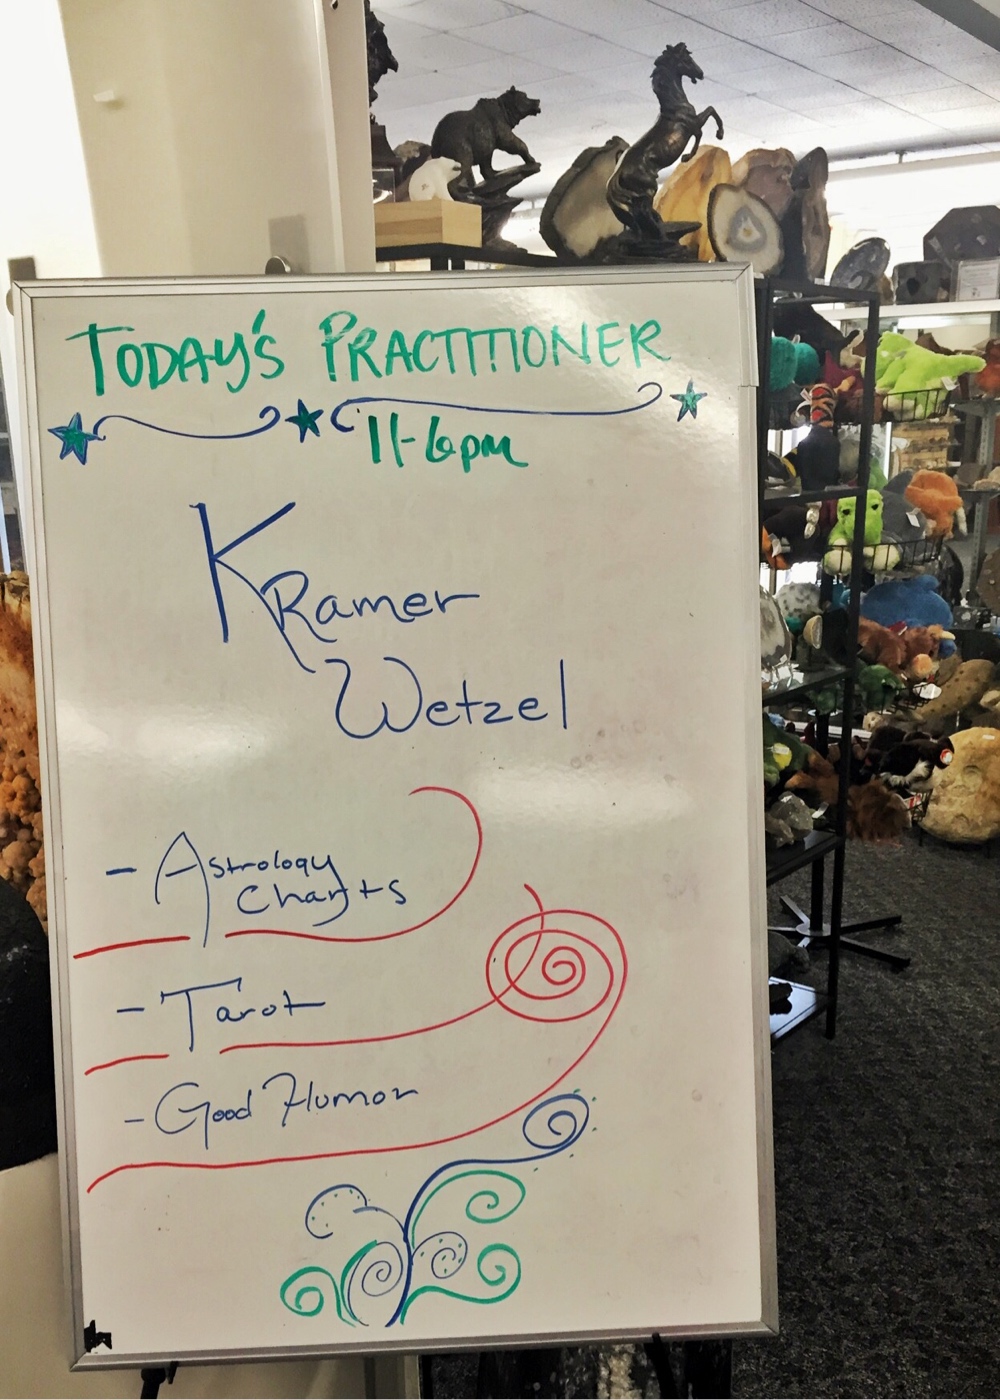 TODAY'S PRACTITIONER
11-6pm
KRamer
Wetzel
- Astrology
Charts
- Tarot
- Good Humor